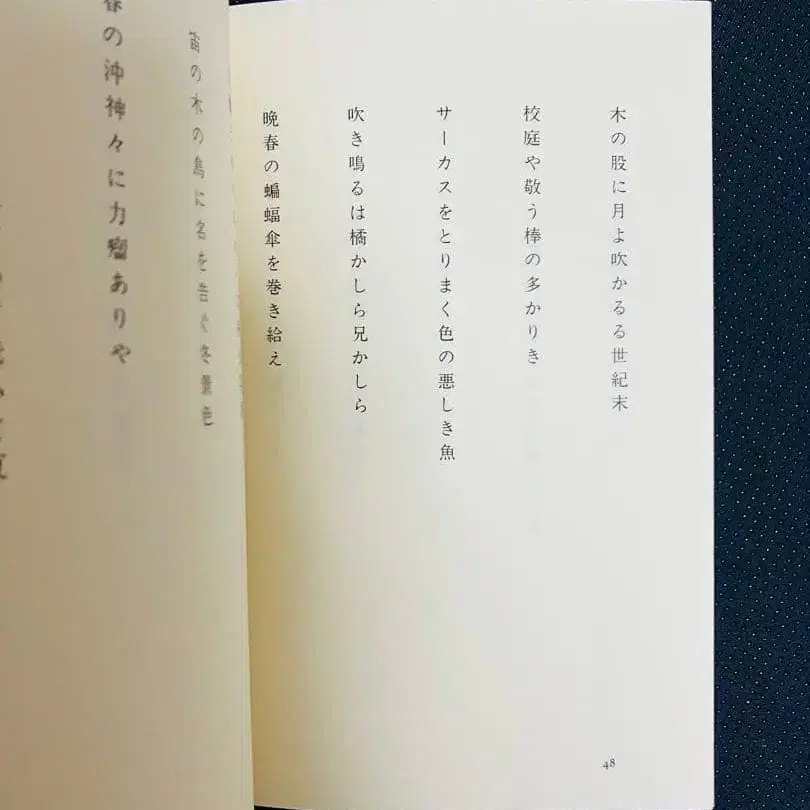 木の股に月よ吹かるる世紀末
校庭や敬う棒の多かりき
サーカスをとりまく色の悪しき魚
吹き鳴るは橘かしら兄かしら
晩春の蝙蝠傘を巻き給え
48
の木の鳥に名を告ぐ冬景色
春の沖神々に力瘤ありや